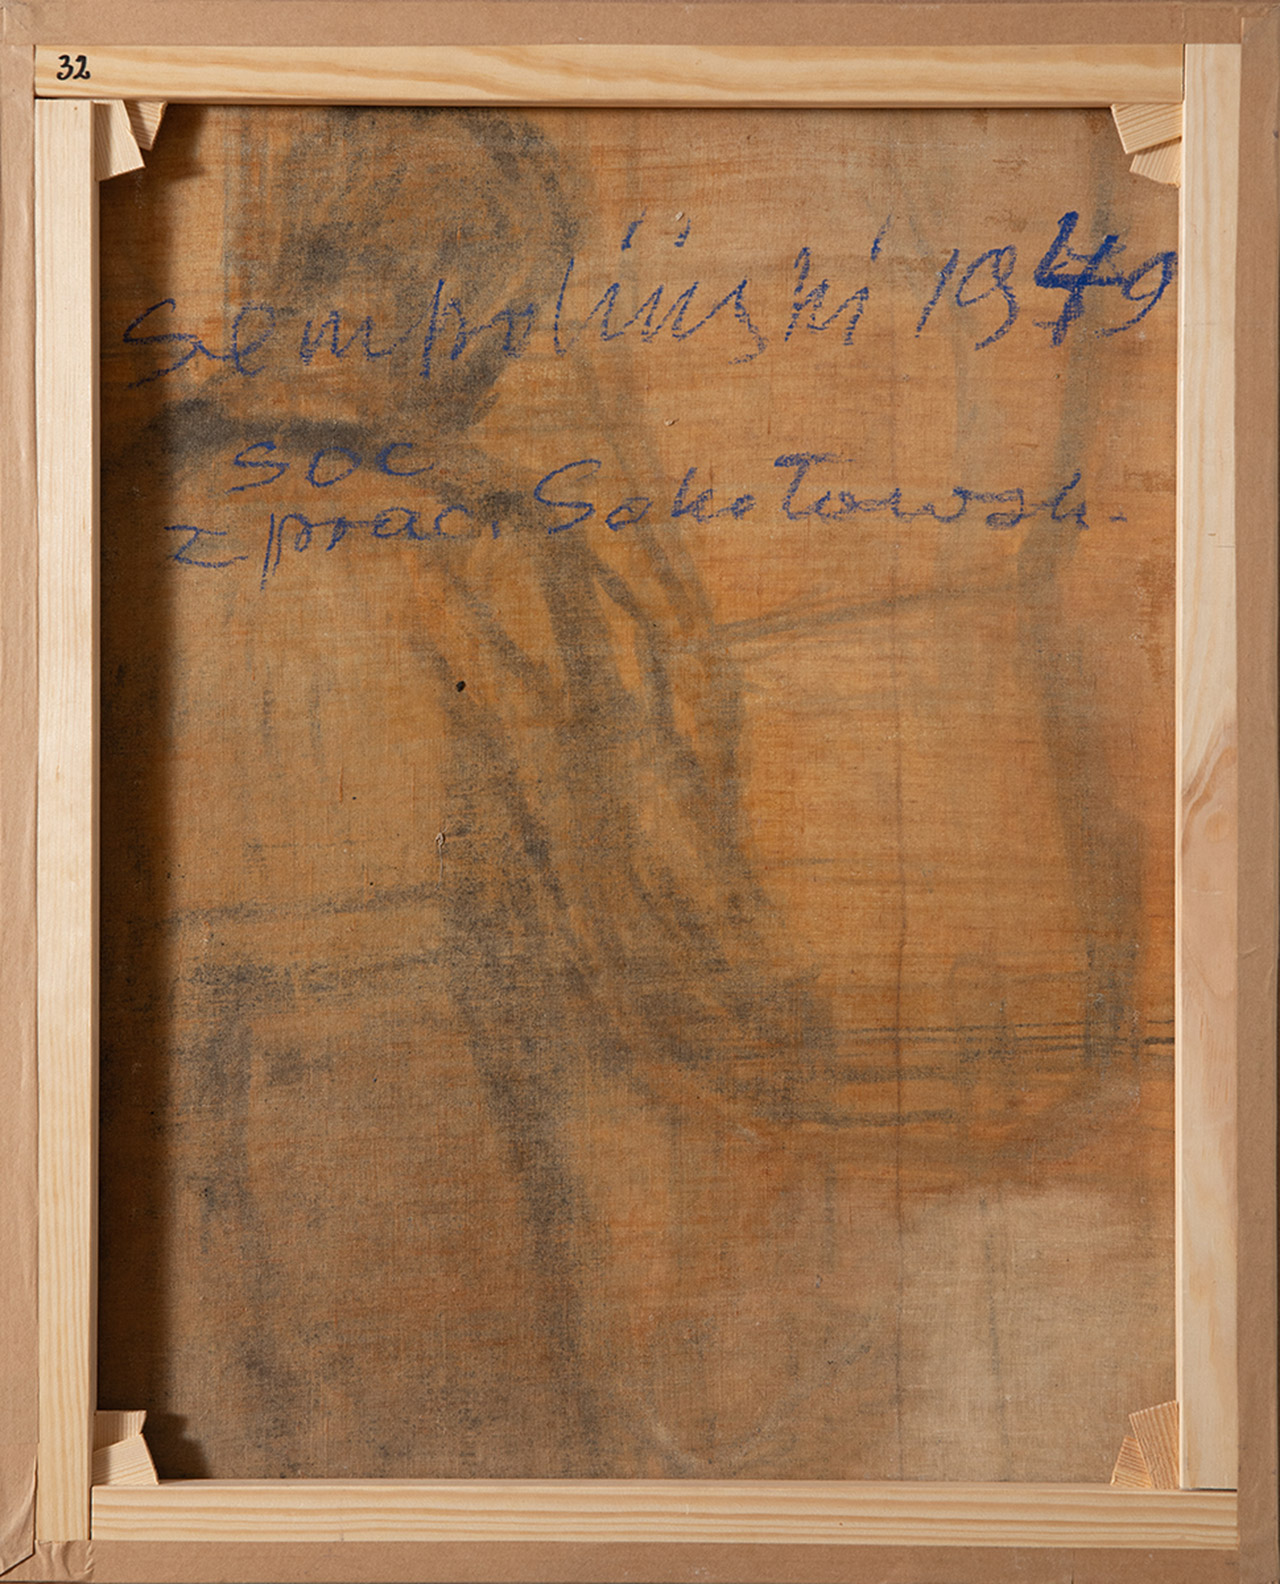 32
Sempoliński 1949
soc
z prac. Sokołowsk.